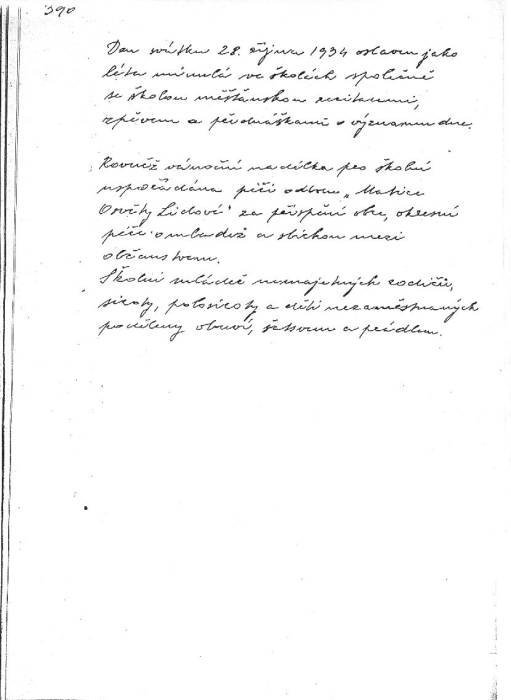 390
Den svátku 28. října 1934 oslaven jako
léta minulá ve školách společně
se školou měšťanskou recitacemi,
zpěvem a přednáškami o významu dne.
Rovněž vánoční nadílka pro školní
uspořádána péčí odboru „Matice
Osvěty Lidové" za přispění obce, okresní
péče o mládež a sbírkou mezi
občanstvem.
Školní mládež nemajetných rodičů,
siroty, polosiroty a děti nezaměstnaných
poděleny obuví, šatstvem a prádlem.